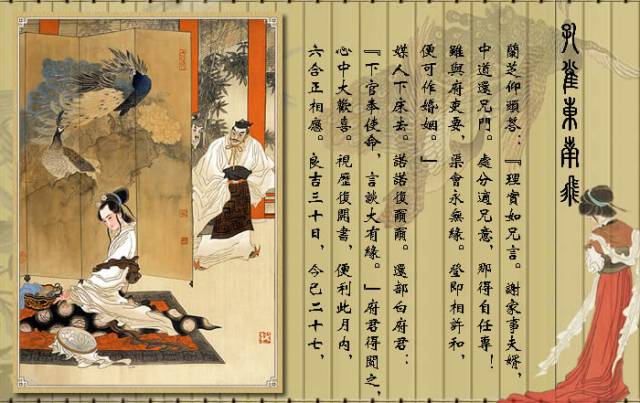 孔雀東南飛
蘭芝仰頭答：『理實如兄言。謝家事夫婿，
中道還兄門。處分適兄意，那得自任專！
雖與府吏要，渠會永無緣。登即相許和，
便可作婚姻。」
媒人下床去。諾諾復爾爾。還部白府君：
『下官奉使命，言談大有緣。」府君得聞之，
心中大歡喜。視歷復開書，便利此月內，
六合正相應。良吉三十日，今已二十七，